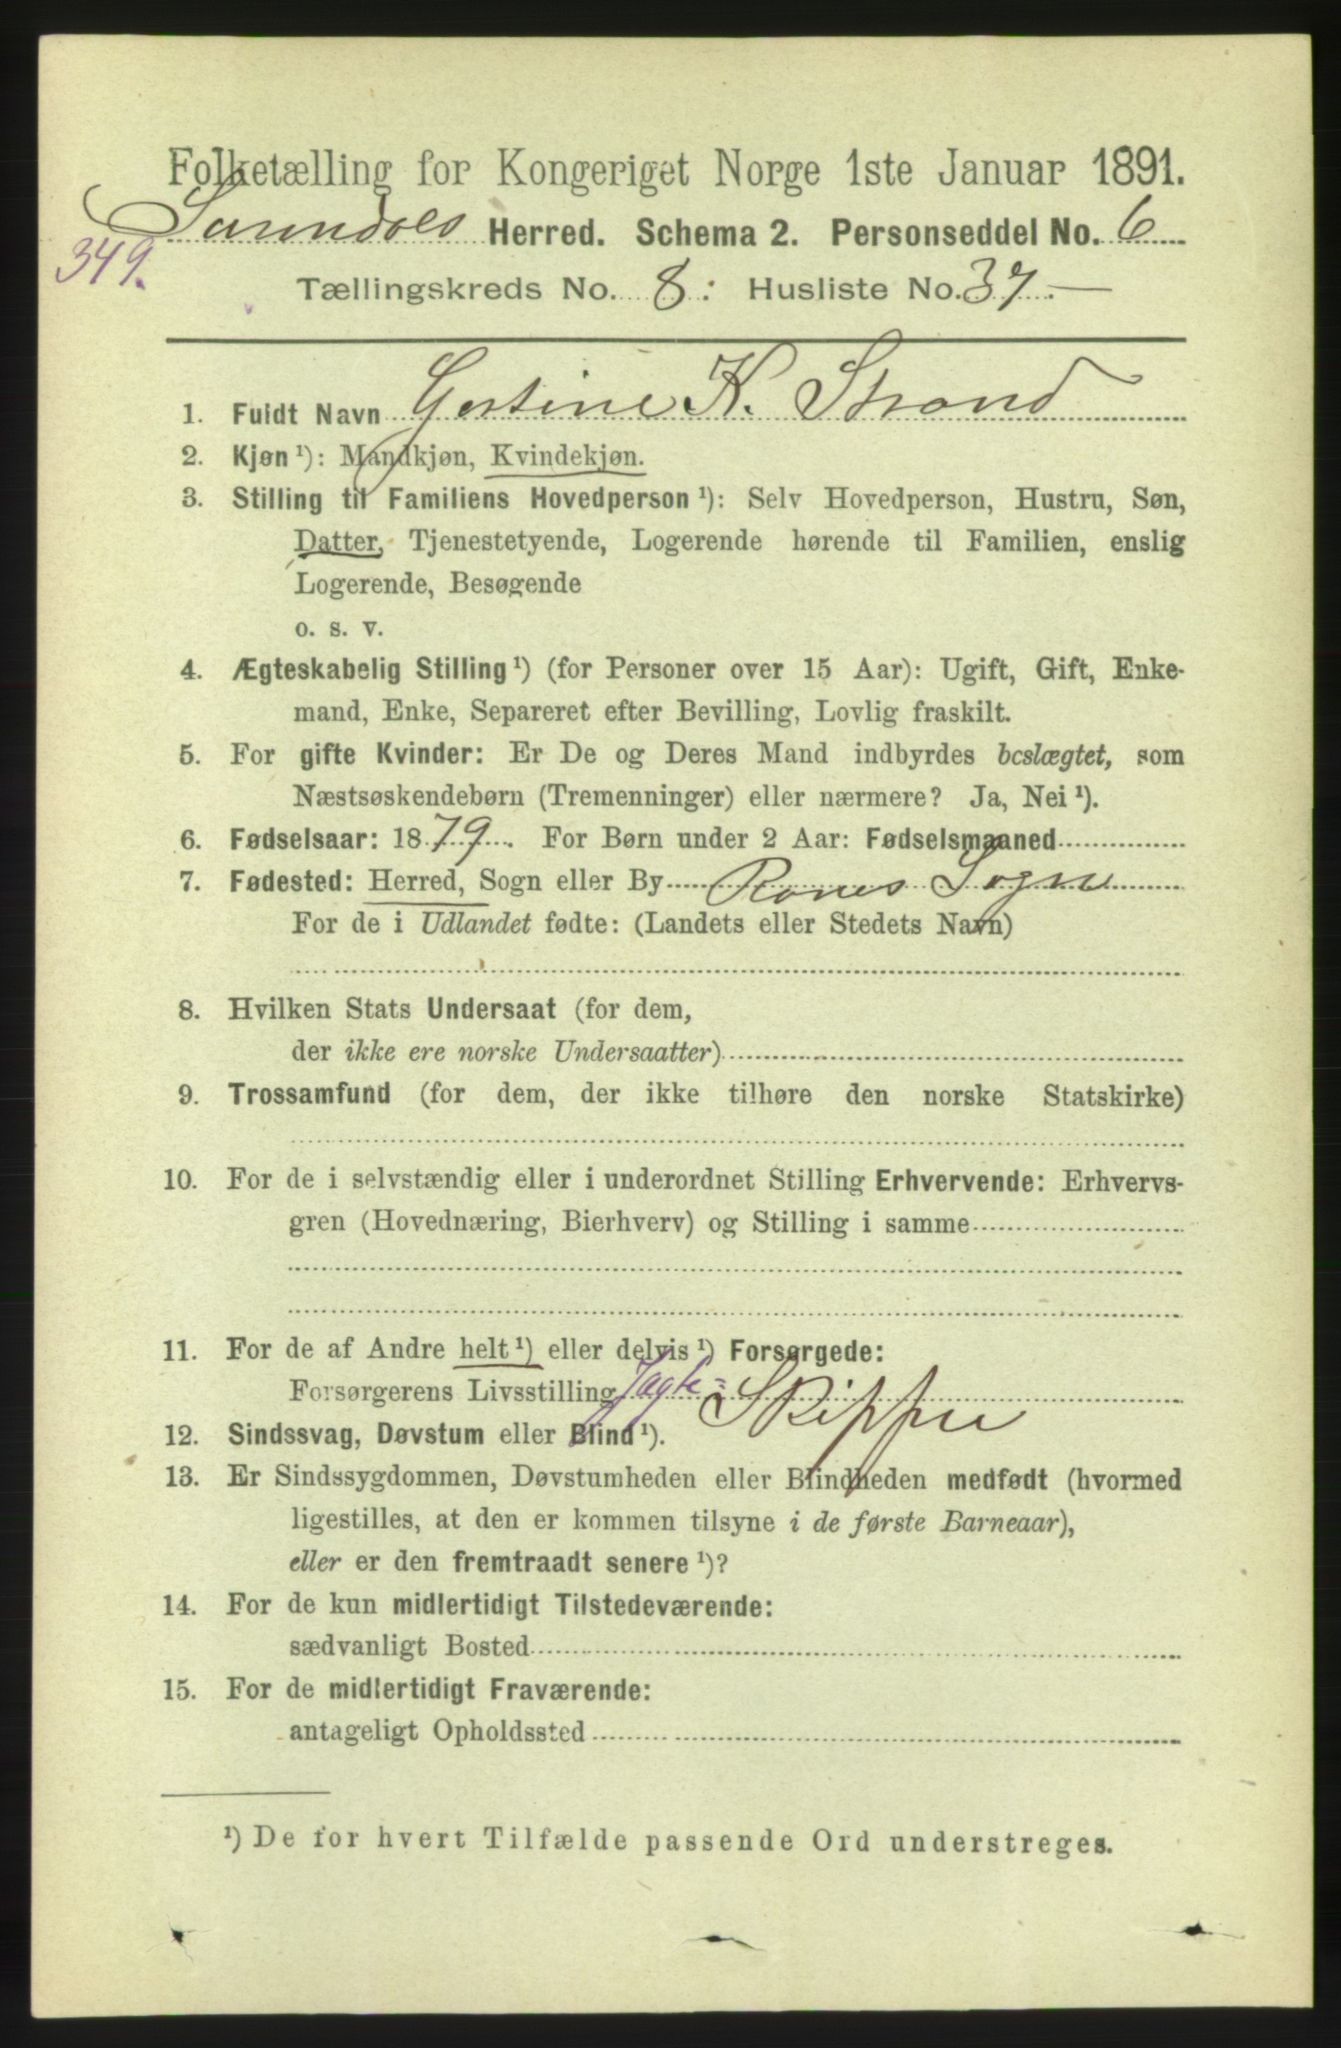 Folketælling for Kongeriget Norge 1ste Januar 1891.
Sunndals Herred. Schema 2. Personseddel No. 6
349.
Tællingskreds No. 8: Husliste No. 37.
1. Fuldt Navn Gertine K. Strand
2. Kjøn ¹): Mandkjøn, Kvindekjøn.
3. Stilling til Familiens Hovedperson ¹): Selv Hovedperson, Hustru, Søn,
Datter, Tjenestetyende, Logerende hørende til Familien, enslig
Logerende, Besøgende
o. s. v.
4. Ægteskabelig Stilling ¹) (for Personer over 15 Aar): Ugift, Gift, Enke-
mand, Enke, Separeret efter Bevilling, Lovlig fraskilt.
5. For gifte Kvinder: Er De og Deres Mand indbyrdes beslægtet, som
Næstsøskendebørn (Tremenninger) eller nærmere? Ja, Nei ¹).
6. Fødselsaar: 1879. For Børn under 2 Aar: Fødselsmaaned
7. Fødested: Herred, Sogn eller By Sogn
For de i Udlandet fødte: (Landets eller Stedets Navn)
8. Hvilken Stats Undersaat (for dem,
der ikke ere norske Undersaatter)
9. Trossamfund (for dem, der ikke tilhøre den norske Statskirke)
10. For de i selvstændig eller i underordnet Stilling Erhvervende: Erhvervs-
gren (Hovednæring, Bierhverv) og Stilling i samme
11. For de af Andre helt ¹) eller delvis ¹) Forsørgede:
Forsørgerens Livsstilling Jagte= Skipper
12. Sindssvag, Døvstum eller Blind ¹).
13. Er Sindssygdommen, Døvstumheden eller Blindheden medfødt (hvormed
ligestilles, at den er kommen tilsyne i de første Barneaar),
eller er den fremtraadt senere ¹)?
14. For de kun midlertidigt Tilstedeværende:
sædvanligt Bosted
15. For de midlertidigt Fraværende:
antageligt Opholdssted
¹) De for hvert Tilfælde passende Ord understreges.